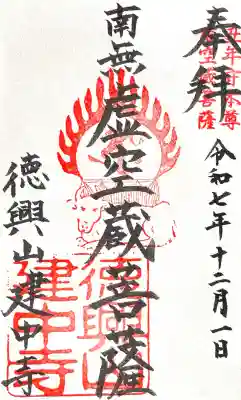 奉拝
丑年守本尊
虚空蔵菩薩
令和七年十二月一日
南無虚空蔵菩薩
徳興山
建中寺
徳興山建中寺